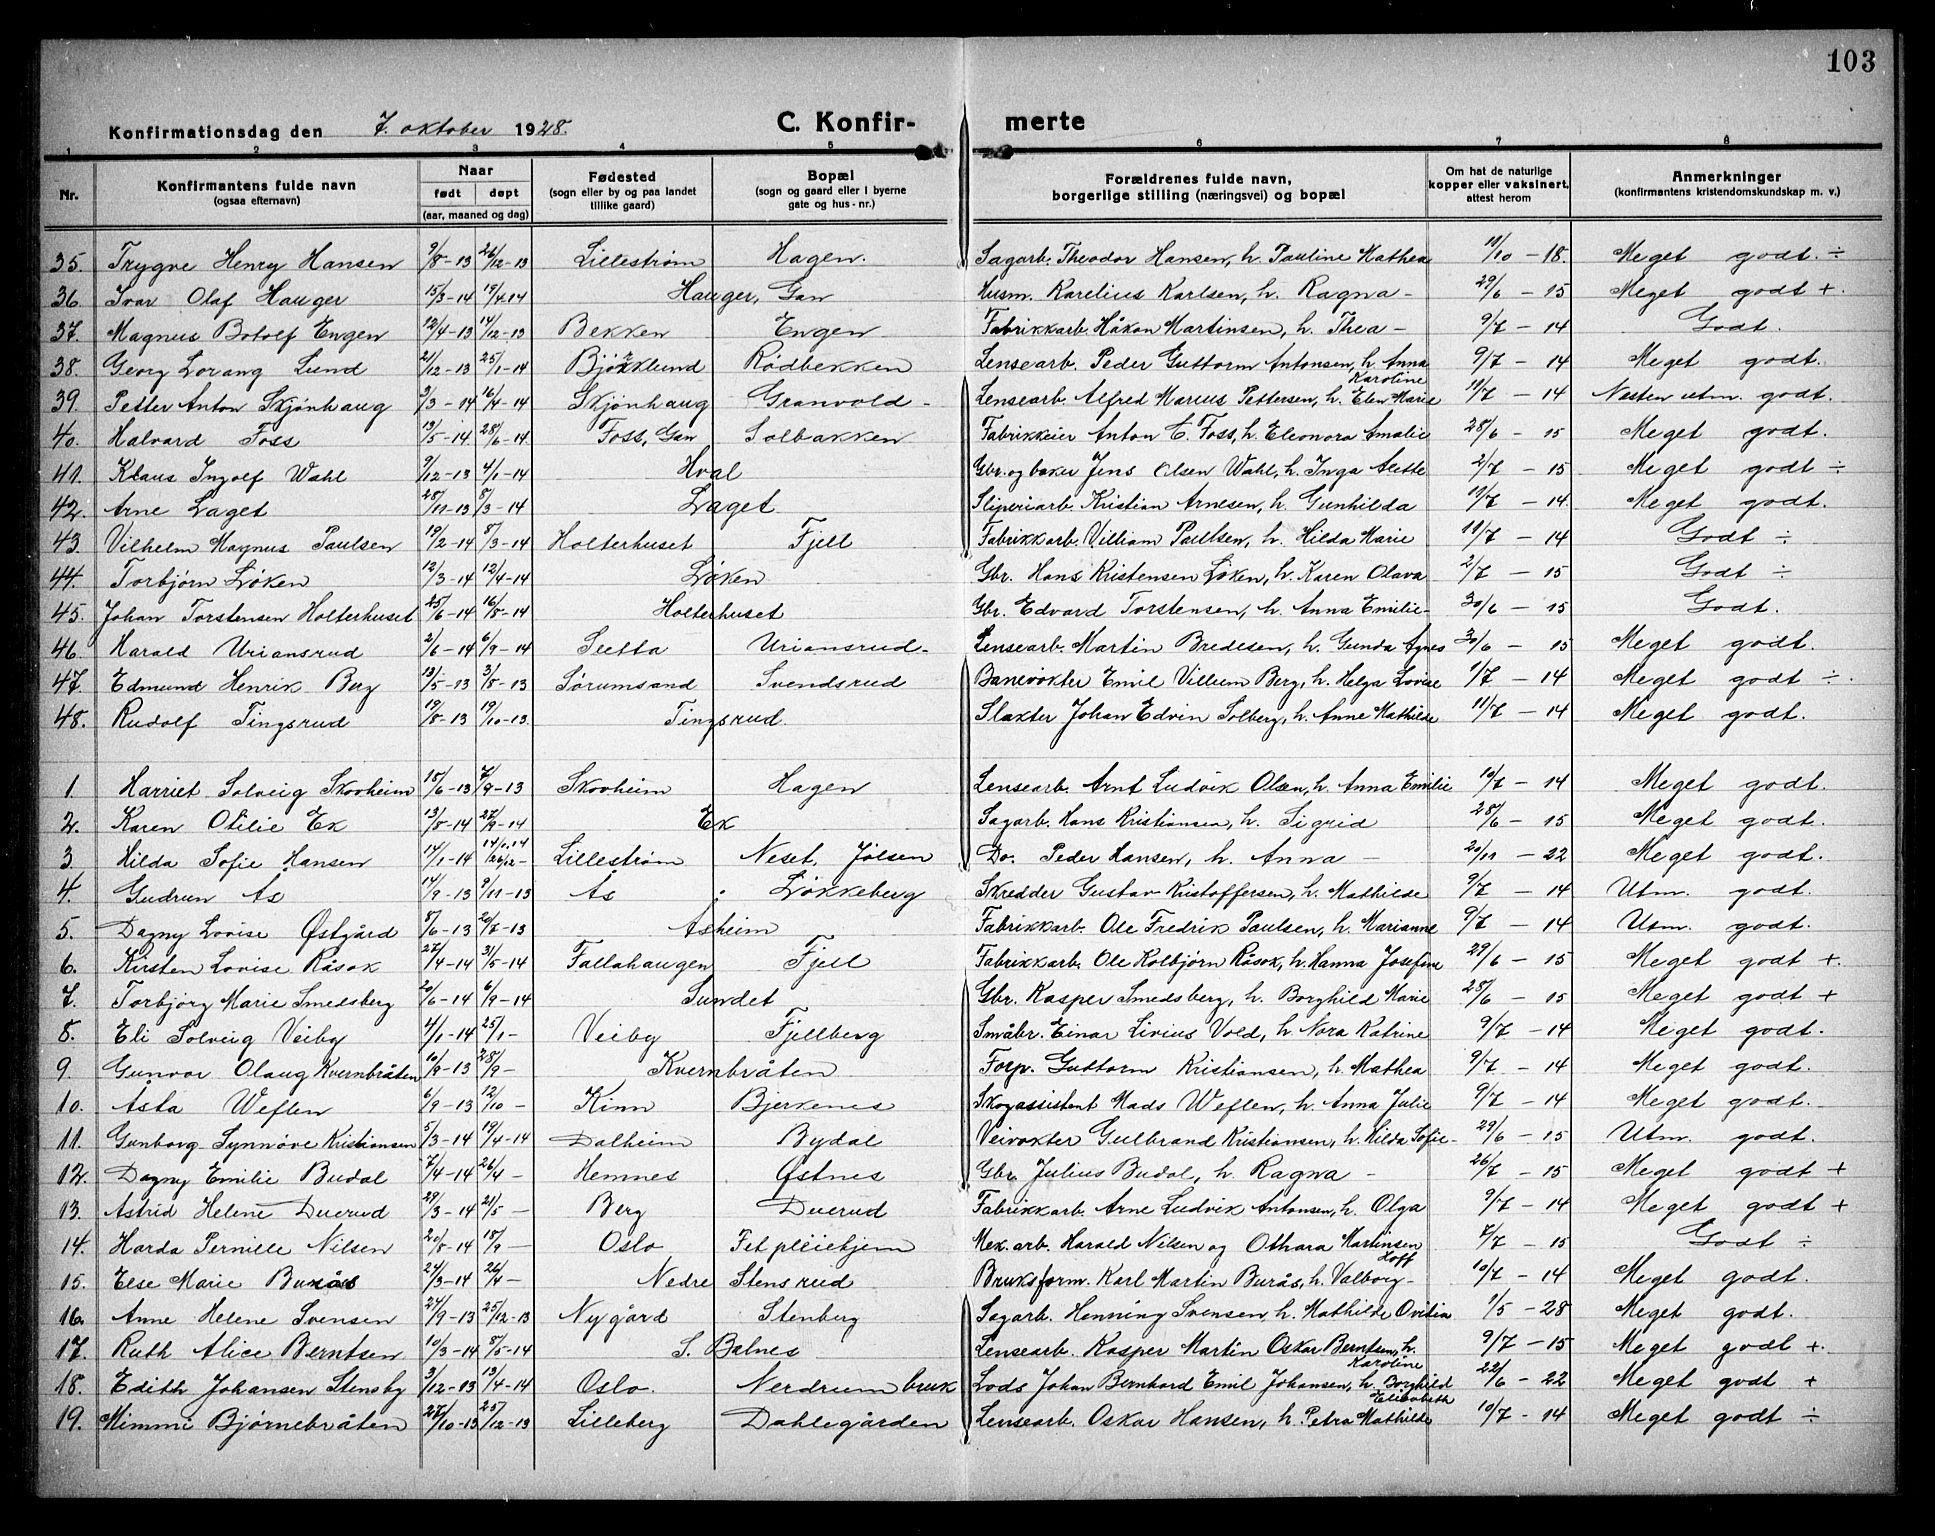 103
Konfirmationsdag den 7. oktober 1928. C. Konfirmerte
1 2 3 4 5 6 7 8
Nr. Konfirmantens fulde navn (ogsaa efternavn) Naar født døpt (aar, maaned og dag) Fødested (sogn eller by og paa landet tillike gaard) Bopæl (sogn og gaard eller i byerne gate og hus-nr.) Forældrenes fulde navn, borgerlige stilling (næringsvei) og bopæl Om hat de naturlige kopper eller vaksinert, attest herom Anmerkninger (konfirmantens kristendomskundskap m. v.)
35. Trygve Henry Hansen 9/8-13 26/12-13 Lillestrøm Hagen. Sagarb. Theodor Hansen, h. Pauline Mathea 11/10 - 18. Meget godt. ÷
36. Ivar Olaf Hauger 15/3-14 19/4.14 Hauger, Gan Husm. Karelius Karlsen, h. Ragna - 29/6 - 15 Meget godt +.
37. Magnus Botolf Engen 12/4-13 14/12-13 Bekken Engen Fabrikkarb. Håkon Martinsen, h. Thea - 9/7 - 14 Godt.
38. Georg Lorang Lund 21/12-13 25/1-14 Bjørklund Rødbekken Lensearb. Peder Guttorm Antonsen, h. Anna Karoline 9/7 - 14 Meget godt.
39. Petter Anton Skjønhaug 2/3-14 16/4-14 Skjønhaug Granvold - Lensearb. Alfred Marius Pettersen, h. Elen Marie 11/7 - 14 Nesten utm. godt.
40. Halvard Foss 13/5-14 28/6-14 Foss, Gan Solbakken Fabrikkeier Anton C. Foss, h. Eleonora Amalie 28/6 - 15 Meget godt.
41. Klaus Ingolf Wahl 9/12-13 4/1-14 Hval Gbr. og baker Jens Olsen Wahl, h. Inga Alette 2/7 - 15 Meget godt ÷
42. Arne Laget 28/11-13 8/3-14 Laget Sliperiarb. Kristian Arnesen, h. Gunhilda 11/7 - 14. Meget godt.
43. Vilhelm Magnus Paulsen 19/2-14 8/3-14 Holterhuset Fjell Fabrikkarb. Villiam Paulsen, h. Hilda Marie 11/7 - 14 Godt ÷
44. Torbjørn Løken 12/3-14 12/4-14 Løken Gbr. Hans Kristensen Løken, h. Karen Olava 2/7 - 15 Godt ÷
45. Johan Torstensen Holterhuset 25/6-14 16/8-14 Holterhuset Gbr. Edvard Torstensen, h. Anna Emilie- 30/6 - 15 Godt.
46. Harald Uriansrud 2/6-14 6/9-14 Sutta Uriansrud- Lensearb. Martin Bredesen, h. Gunda Agnes 30/6 - 15 Meget godt.
47. Edmund Henrik Berg 13/5-13 3/8-13 Sørumsand Svendsrud Banevokter Emil Villum Berg, h. Helga Lovise 1/7 - 14 Meget godt ÷.
48. Rudolf Tingsrud 19/8-13 19/10-13. Tingsrud. Slakter Johan Edvin Solberg, h. Anne Mathilde 11/7 - 14 Meget godt.
1 Harriet Solveig Skovheim 15/6-13 7/9-13 Skovheim Hagen Lensearb. Arnt Ludvik Olsen, h. Anna Emilie 10/7 - 14 Meget godt.
2. Karen Otilie Ek 13/8-14 27/9-14 Ek Sagarb. Hans Kristiansen, h. Sigrid 28/6 - 15 Meget godt.
3 Hilda Sofie Hansen 14/1-14 26/12- Lillestrøm Neset, Jølsen Do. Peder Hansen, h. Anna - 20/11 - 22 Meget godt.
4. Gudrun Ås 17/9-13 9/11-13 Ås Løkkeberg Skredder Gustav Kristoffersen, h. Mathilde 9/7 - 14 Utm. godt.
5. Dagny Lovise Østgård 8/6-13 20/7-13 Åsheim Fabrikkarb. Ole Fredrik Paulsen, h. Marianne 9/7 - 14 Utm. godt.
6. Kirsten Lovise Råsok 27/4-14 31/5-14 Fallahaugen Fjell Fabrikkarb. Ole Kolbjørn Råsok, h. Hanna Josefine 29/6 - 15 Meget godt +.
7. Torbjørg Marie Smedsberg 20/6-14 6/9-14 Sundet Gbr. Kasper Smedsberg, h. Borghild Marie 25/6 - 15 Meget godt +
8. Eli Solveig Veiby 4/1-14 25/1- Veiby Fjellberg Småbr. Einar Livius Vold, h. Nora Katrine 9/7 - 14 Meget godt.
9. Gunvor Olaug Kvernbråten 10/9-13 28/9- Kvernbråten Forp. Guttorm Kristiansen, h. Mathea 9/7 - 14 Meget godt.
10. Åsta Weflen 6/9-13 12/10 - Kinn Bjerkenes Skogassistent Mads Weflen, h. Anna Julie 9/7 - 14 Meget godt.
11. Gunborg Synnøve Kristiansen 5/3-14 19/4-14 Dalheim Bydal Veivokter Gulbrand Kristiansen, h. Hilda Sofie- 29/6 - 15 Utm. godt.
12. Dagny Emilie Budal 7/4-14 26/4- Hemnes Østnes Gbr. Julius Budal, h. Ragna - 26/7 - 15 Meget godt +
13. Astrid Helene Duerud 29/3-14 21/5 - Berg Duerud Fabrikkarb. Arne Ludvik Antonsen, h. Olga 9/7 - 14 Meget godt +
14. Harda Pernille Nilsen 20/8-14 18/9 - Oslo Fet pleiehjem Mek. arb. Harald Nilsen og Othara Martinsen Hoff 7/7 - 15 Godt ÷
15. Else Marie Burås 24/3-14 26/4- Nedre Stensrud Bruksform. Karl Martin Burås, h. Valborg- 10/7 - 14 Meget godt.
16. Anne Helene Svensen 24/9-13 25/12-13 Nygård Stenberg Sagarb. Henning Svensen, h. Mathilde Ovitia 1/5 - 28 Meget godt.
17. Ruth Alice Berntsen 10/3-14 8/5-14 S. Balnes Lensearb. Kasper Martin Oskar Berntsen, h. Karoline 9/7 - 15 Meget godt +.
18. Edith Johansen Stensby 3/12-13 13/4-14 Oslo. Nerdrum bruk Lods Johan Bernhard Emil Johansen, h. Borghild Elisabeth 22/6 - 22 Meget godt +
19. Mimmi Bjørnebråten 27/10-13 25/12-13 Lilleberg Dahlegården Lensearb. Oskar Hansen, h. Petra Mathilde 10/7 - 14 Meget godt ÷